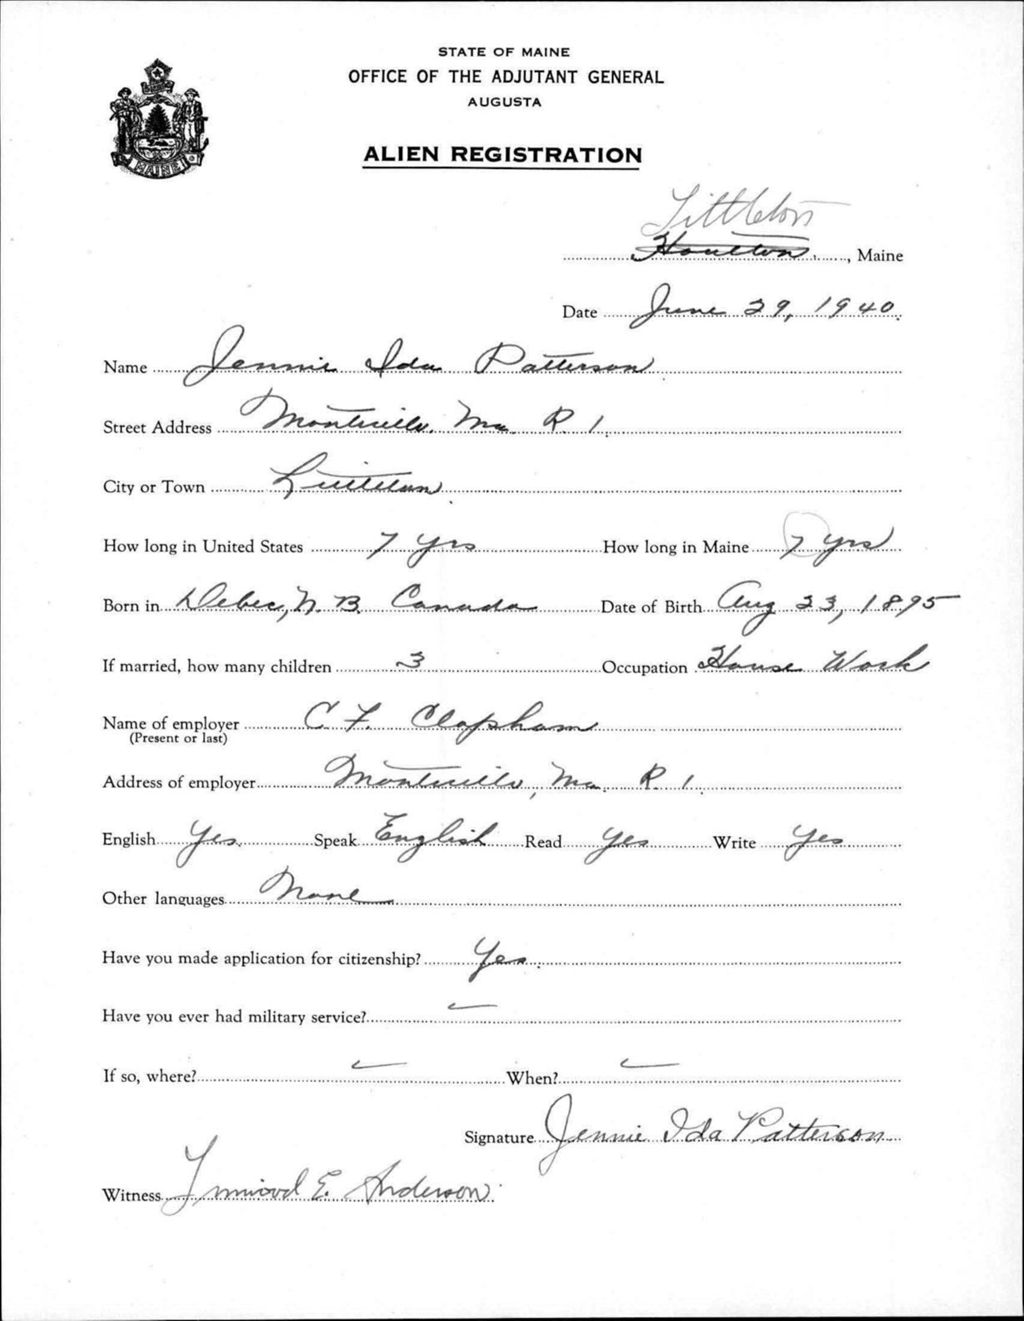 STATE OF MAINE
OFFICE OF THE ADJUTANT GENERAL
AUGUSTA
MAINE
ALIEN REGISTRATION
Littleton
Houlton, Maine
Date June 29, 1940.
Name Jennie Ida Patterson
Street Address Monticello, Me. R. 1.
City or Town Littleton
How long in United States 7 yrs How long in Maine 7 yrs
Born in Debec, N. B. Canada Date of Birth Aug 23, 1895
If married, how many children 3 Occupation House Work
Name of employer C. F. Clapham
(Present or last)
Address of employer Monticello, Me. R. 1.
English Yes. Speak English Read Yes Write Yes
Other languages None
Have you made application for citizenship? Yes.
Have you ever had military service?
If so, where? When?
Signature Jennie Ida Patterson
Witness E. Anderson